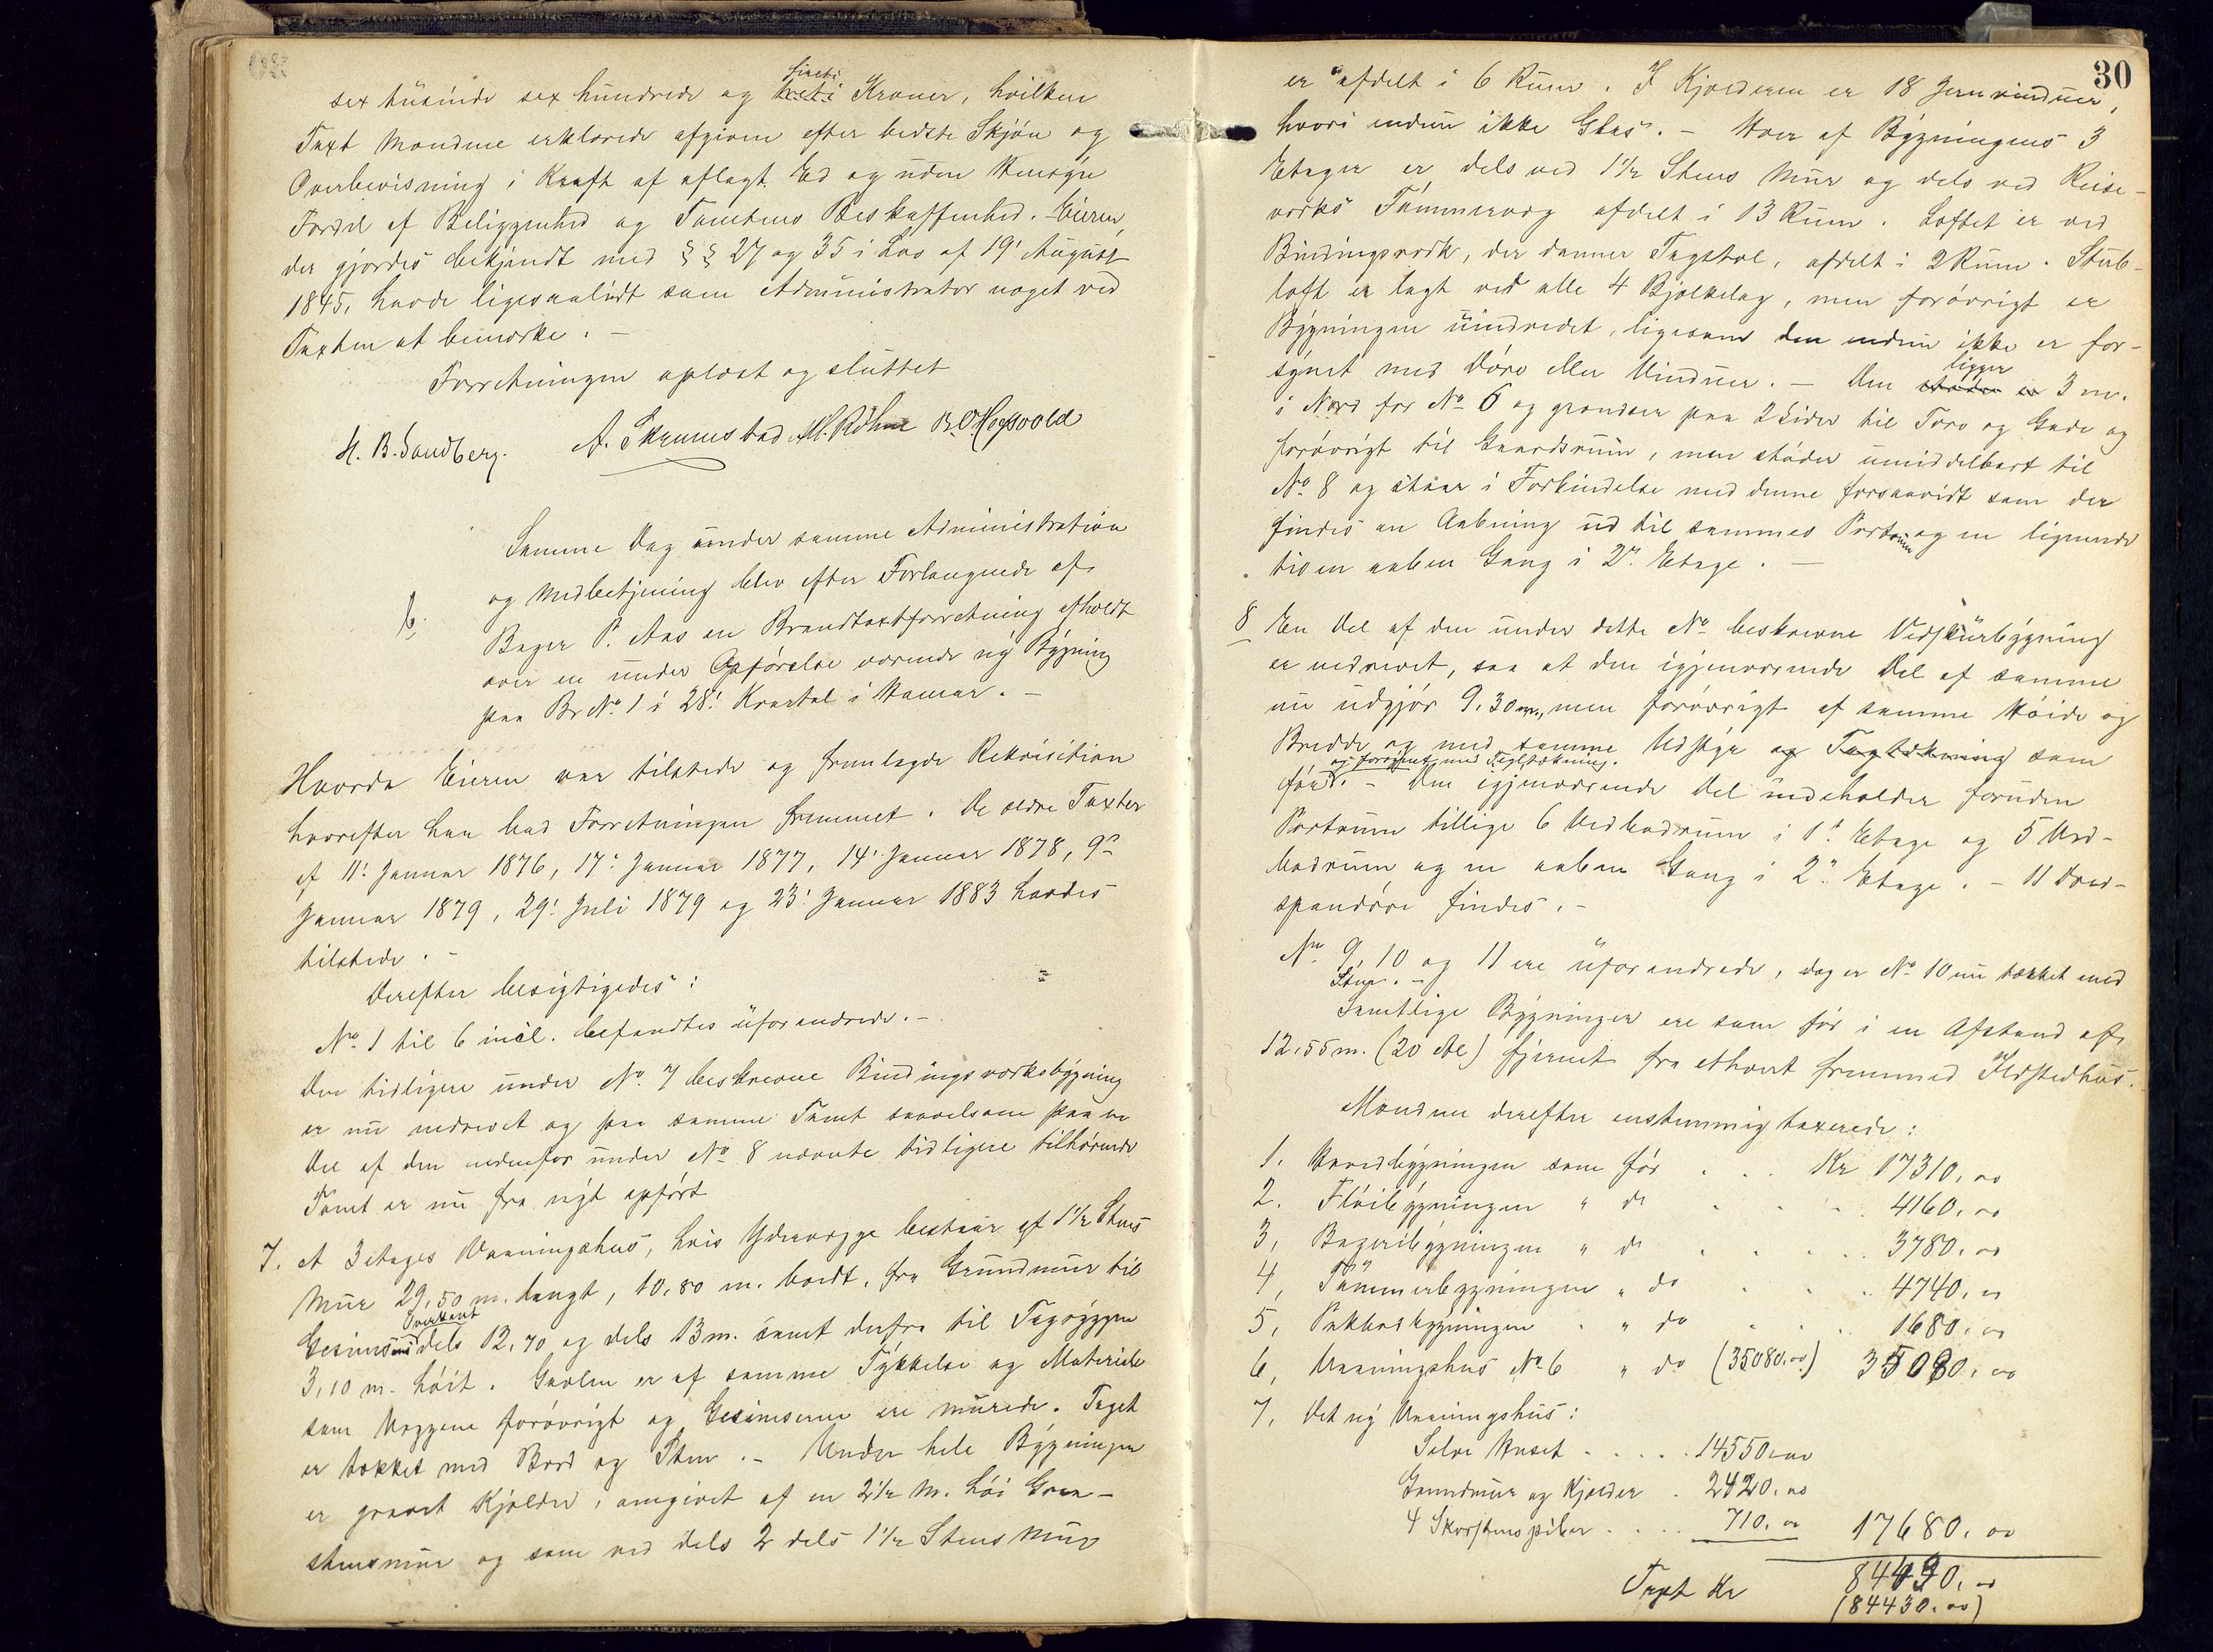 sex tusinde sex hundrede og firti Kroner, hvilken
Taxt Mændene erklærede afgiven efter bedste Skjøn og
Overbevisning i Kraft af aflagt Ed og uden Hensyn
Fordel af Beliggenhed og Tomtens Beskaffenhed. Eieren,
der gjordes bekjendt med §§ 27 og 35 i Lov af 19' August
1845, havde ligesaalidt som Administrator noget ved
Taxten at bemærke. –
Forretningen oplæst og sluttet
H. B. Sandberg. A. Skrumstad M. Røhne B. O. Hogsvold
Samme Dag under samme Administration
og Medbetjening blev efter Forlangende af
Bager P. Aas en Brandtaxtforretning afholdt
over en under Opførelse værende ny Bygning
paa Br No 1 i 28' Kvartal i Hamar. –
Hvorda Eieren var tilstede og fremlagde Rekvisition
hvorefter han bad Forretningen fremmet. De ældre Taxter
af 11' Januar 1876, 17' Januar 1877, 14' Januar 1878, 9'
Januar 1879, 29' Juli 1879 og 23' Januar 1883 havdes
tilstede. –
Derefter besigtigedes:
No 1 til 6 incl. befandtes uforandrede. –
Den tidligere under No 7 beskrevne Bindingsværksbygning
er nu nedrevet og paa samme Tomt saavelsom paa en
Del af den nedenfor under No 8 nævnte tidligere tilhørende
Tomt er nu fra nyt opført
7. et 3 etages Vaaningshus, hvis Ydervægge bestaar af 1 1/2 Stens
Mur 29,50 m. langt, 10,80 m. bredt, fra Grundmur til
Overkant
Gesims dels 12,70 og dels 13 m. samt derfra til Tagryggen
3,10 m. høit. Gavlen er af samme Tykkelse og Materiale
som Væggene forøvrigt og Gesimserne ere murede. Taget
er tækket med Bord og Sten. – Under hele Bygningen
er gravet Kjelder, omgivet af en 2 1/2 M. høi Graa-
stensmur og som ved dels 2 dels 1 1/2 Stens Mur
30
er afdelt i 6 Rum. I Kjelderen er 18 Jernvinduer,
hvori endnu ikke Glas. – Hver af Bygningens 3
Etager er dels ved 1 1/2 Stens Mur og dels ved Reise-
værks Tømmervæg afdelt i 13 Rum. Loftet er ved
Bindingsværk, der danner Tagstol, afdelt i 2 Rum. Stub-
loft er lagt ved alle 4 Bjelkelag, men forøvrigt er
Bygningen uindredet, ligesom den endnu ikke er for-
synet med Døre eller Vinduer. – Den ligger 3 m.
i Nord for No 6 og grændser paa 2 Sider til Torv og Gade og
forøvrigt til Gaardsrum, men støder umiddelbart til
No 8 og staar i Forbindelse med denne forsaavidt som der
findes en Aabning ud til sammes Portrum og en lignende
til en aaben Gang i 2' Etage. –
8 En Del af den under dette No beskrevne Vedskurbygning
er nedrevet, saa at den igjenværende Del af samme
nu udgjør 9,30 m., men forøvrigt af samme Høide og
Bredde og med samme Udstyr og Tagtækning som
og forsynet med Tagtækning.
før. – Den igjenværende Del indeholder foruden
Portrum tillige 6 Vedbodrum i 1' Etage og 5 Ved-
bodrum og en aaben Gang i 2' Etage. – 11
findes. –
No 9, 10 og 11 ere uforandrede, dog er No 10 nu tækket med
Sten. –
Samtlige Bygninger ere som før i en Afstand af
12,55 m. (20 Al) fjernet fra ethvert fremmed Ildstedhus.
Mændene derefter enstemmig taxerede:
1. Hovedbygningen som før . . Kr 17310,00
2. Fløibygningen " do . . . 4160,00
3, Bageribygningen " do . . . 3780,00
4, Tømmerbygningen " do . . 4740,00
5, Pakbodbygningen " do . . 1680,00
6, Vaaningshus No 6 " do (35080,00) 35080,00
7, Det ny Vaaningshus:
Selve Huset . . . . 14550,00
Grundmur og Kjelder . 2420,00
4 Skorstenspiber . . . . 710,00 17680,00
Taxt Kr 84430,00
(84430,00)